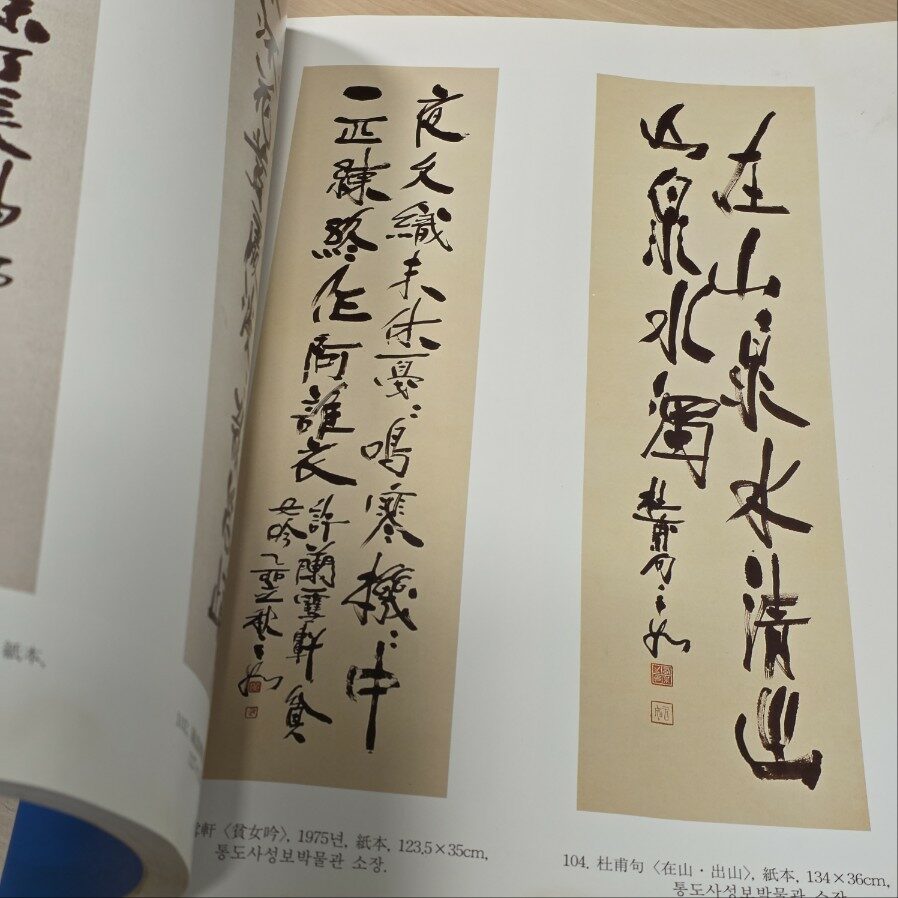 紙本,
夜久織未休戛〻鳴寒機〻中
一匹練終作阿誰衣
許蘭雪軒貧
女吟乙卯之秋
軒〈貧女吟〉, 1975년, 紙本, 123.5×35cm,
통도사성보박물관 소장.
在山泉水清出
山泉水濁
杜甫句
104. 杜甫句〈在山・出山〉, 紙本, 134×36cm,
통도사성보박물관 소장.